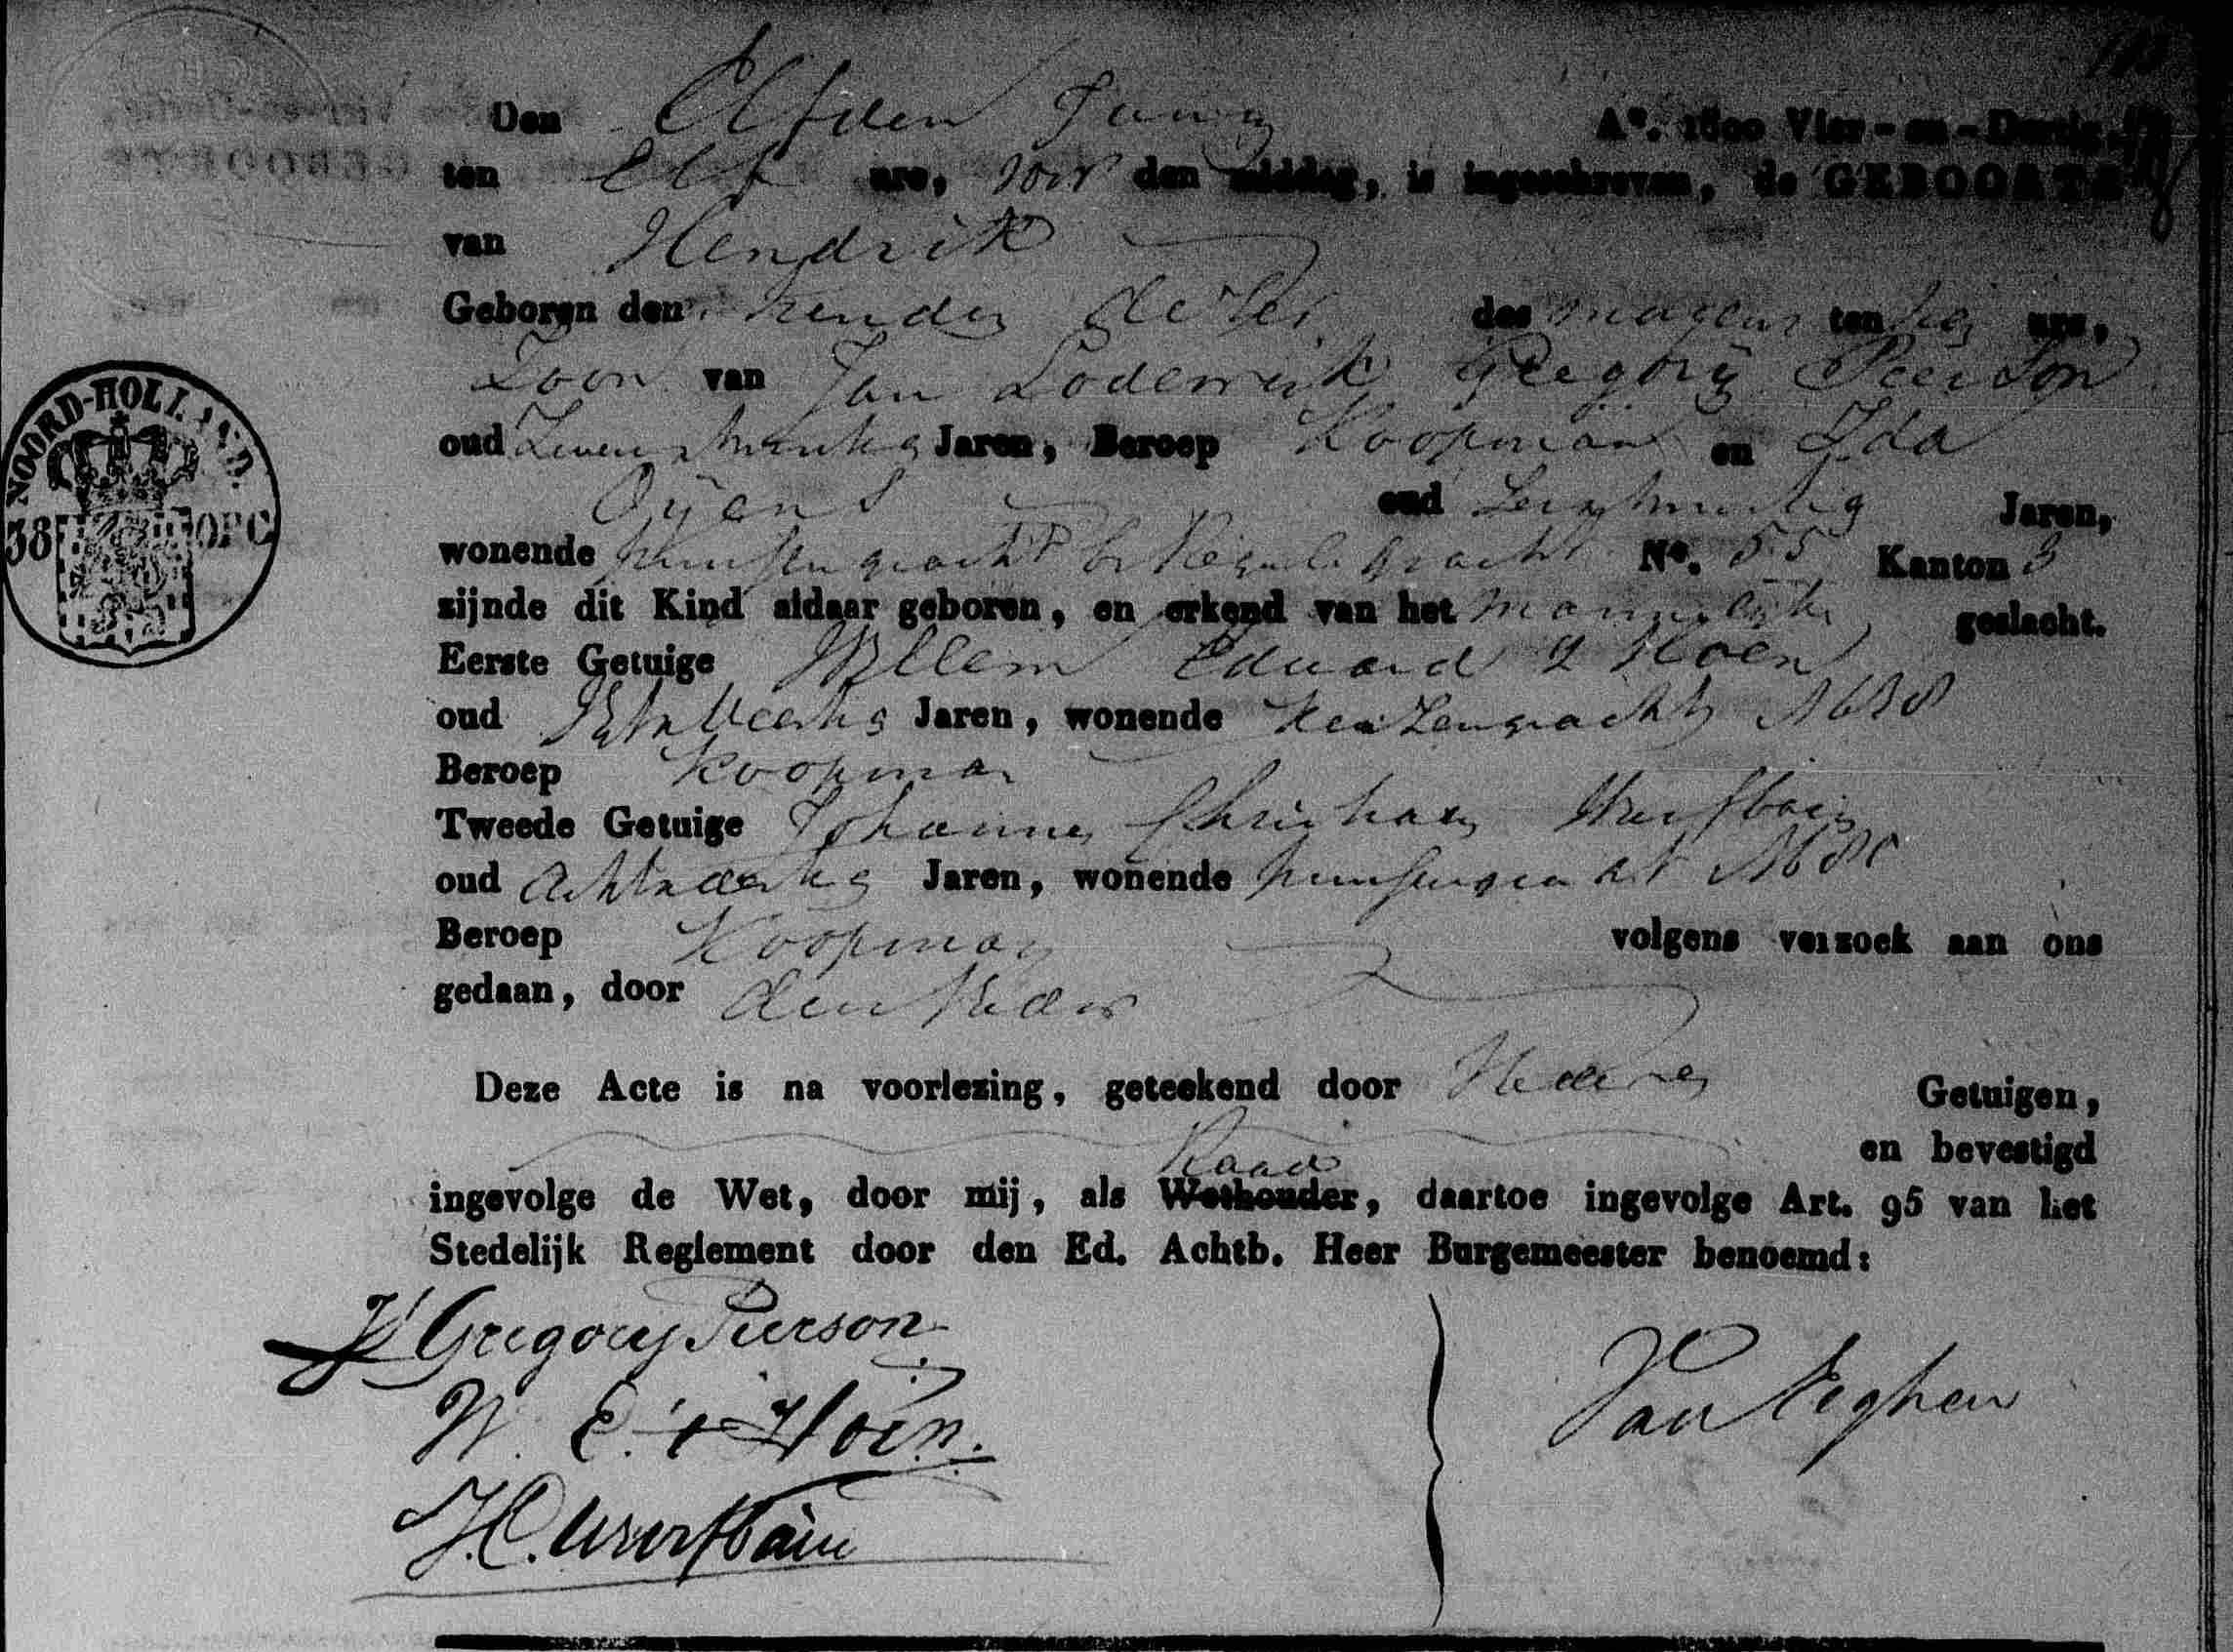 Den Elfden Juny A°. 1800 Vier-en-Dertig,
ten Elf ure, voor den middag, is ingeschreven, de GEBOORTE
van Hendrik
Geboren den tienden dezer des morgens ten ure,
Zoon van Jan Lodewijk Gregory Pierson
oud Zeven Jaren, Beroep Koopman en Ida
Oyens oud Jaren,
wonende Prinsengracht bij Reguliersgracht N°. 55 Kanton 3
zijnde dit Kind aldaar geboren, en erkend van het mannelijke geslacht.
Eerste Getuige Willem Eduard 't Hoen
oud Jaren, wonende Keizersgracht
Beroep Koopman
Tweede Getuige Johannes Christiaan Wurfbain
oud Jaren, wonende Prinsengracht
Beroep Koopman volgens verzoek aan ons
gedaan, door den Vader
Deze Acte is na voorlezing, geteekend door Getuigen,
en bevestigd
Raad
ingevolge de Wet, door mij, als Wethouder, daartoe ingevolge Art. 95 van het
Stedelijk Reglement door den Ed. Achtb. Heer Burgemeester benoemd:
Gregory Pierson
W. E. 't Hoen.
J.C. Wurfbain
Van Eeghen
NOORD-HOLLAND.
38 OPC